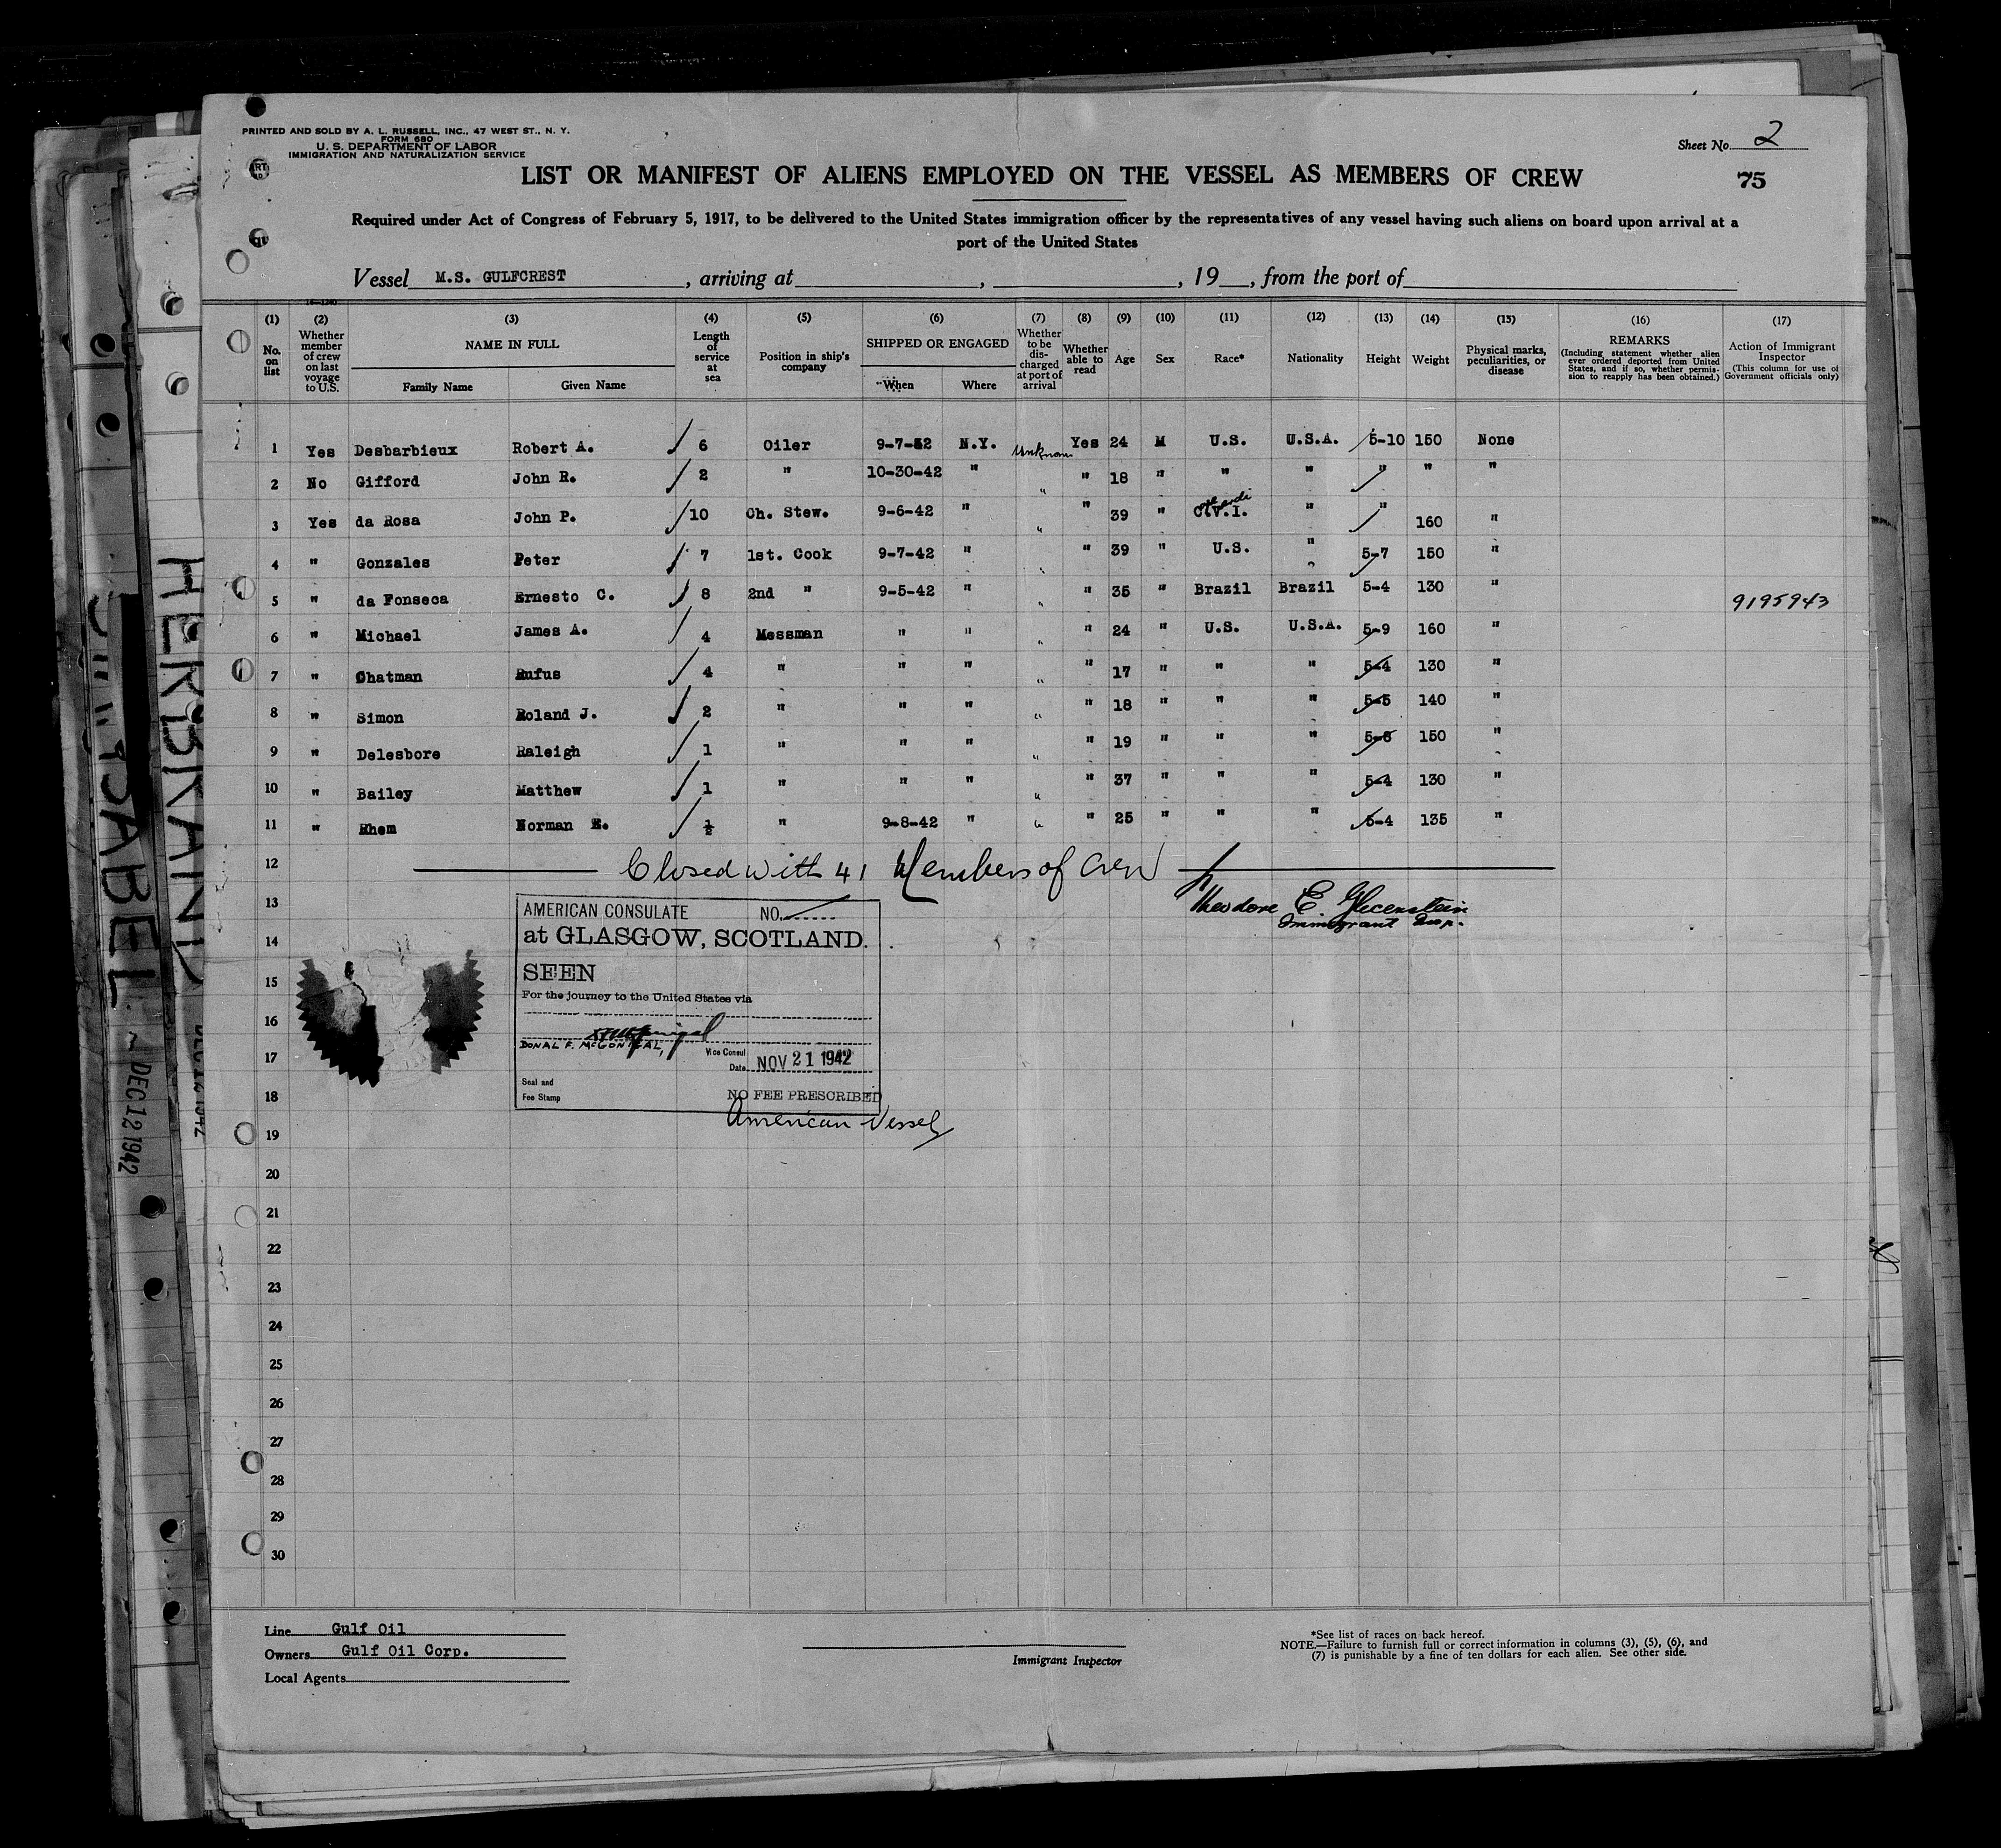 PRINTED AND SOLD BY A. L. RUSSELL, INC., 47 WEST ST., N. Y.
FORM 680
U. S. DEPARTMENT OF LABOR
IMMIGRATION AND NATURALIZATION SERVICE
Sheet No. 2
LIST OR MANIFEST OF ALIENS EMPLOYED ON THE VESSEL AS MEMBERS OF CREW
75
Required under Act of Congress of February 5, 1917, to be delivered to the United States immigration officer by the representatives of any vessel having such aliens on board upon arrival at a
port of the United States
Vessel M.S. GULFCREST, arriving at , , 19 , from the port of
(1) (2) (3) (4) (5) (6) (7) (8) (9) (10) (11) (12) (13) (14) (15) (16) (17)
No. on list
Whether member of crew on last voyage to U.S.
NAME IN FULL
Family Name Given Name
Length of service at sea
Position in ship's company
SHIPPED OR ENGAGED
When Where
Whether to be discharged at port of arrival
Whether able to read
Age Sex Race* Nationality Height Weight
Physical marks, peculiarities, or disease
REMARKS
(Including statement whether alien ever ordered deported from United States, and if so, whether permission to reapply has been obtained.)
Action of Immigrant Inspector
(This column for use of Government officials only)
1 Yes Desbarbieux Robert A. 6 Oiler 9-7-42 N.Y. Unknown Yes 24 M U.S. U.S.A. 5-10 150 None
2 No Gifford John R. 2 " 10-30-42 " " " 18 " " " " " "
3 Yes da Rosa John P. 10 Ch. Stew. 9-6-42 " " " 39 " C.V.I. " " 160 "
4 " Gonzales Peter 7 1st. Cook 9-7-42 " " " 39 " U.S. " 5-7 150 "
5 " da Fonseca Ernesto C. 8 2nd " 9-5-42 " " " 35 " Brazil Brazil 5-4 130 " 9195943
6 " Michael James A. 4 Messman " " " " 24 " U.S. U.S.A. 5-9 160 "
7 " Chatman Rufus 4 " " " " " 17 " " " 5-4 130 "
8 " Simon Roland J. 2 " " " " " 18 " " " 5-5 140 "
9 " Delesbore Raleigh 1 " " " " " 19 " " " 5-6 150 "
10 " Bailey Matthew 1 " " " " " 37 " " " 5-4 130 "
11 " Rhem Norman E. ½ " 9-8-42 " " " 25 " " " 5-4 135 "
12 Closed with 41 Members of Crew
13
Theodore E
Immigrant Insp.
AMERICAN CONSULATE NO.
at GLASGOW, SCOTLAND.
14
SEEN
15
For the journey to the United States via
16
DONAL F. McGONIGAL,
Vice Consul
17
Date NOV 21 1942
Seal and
Fee Stamp
NO FEE PRESCRIBED
18
American Vessel
19
20
21
22
23
24
25
26
27
28
29
30
Line Gulf Oil
Owners Gulf Oil Corp.
Local Agents
Immigrant Inspector
*See list of races on back hereof.
NOTE.—Failure to furnish full or correct information in columns (3), (5), (6), and
(7) is punishable by a fine of ten dollars for each alien. See other side.
DEC 12 1942